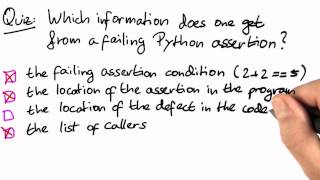 Quiz: Which information does one get
from a failing Python assertion?
the failing assertion condition (2+2 == 5)
the location of the assertion in the program
the location of the defect in the code
the list of callers